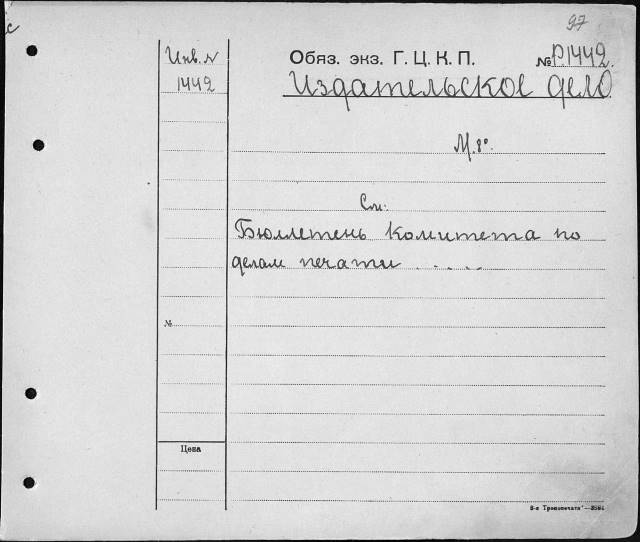 97
Инв. N
1442
Обяз. экз. Г. Ц. К. П.
№ Р1442.
Издательское дело
М. 8°.
См:
Бюллетень комитета по
делам печати . . . . .
№
Цена